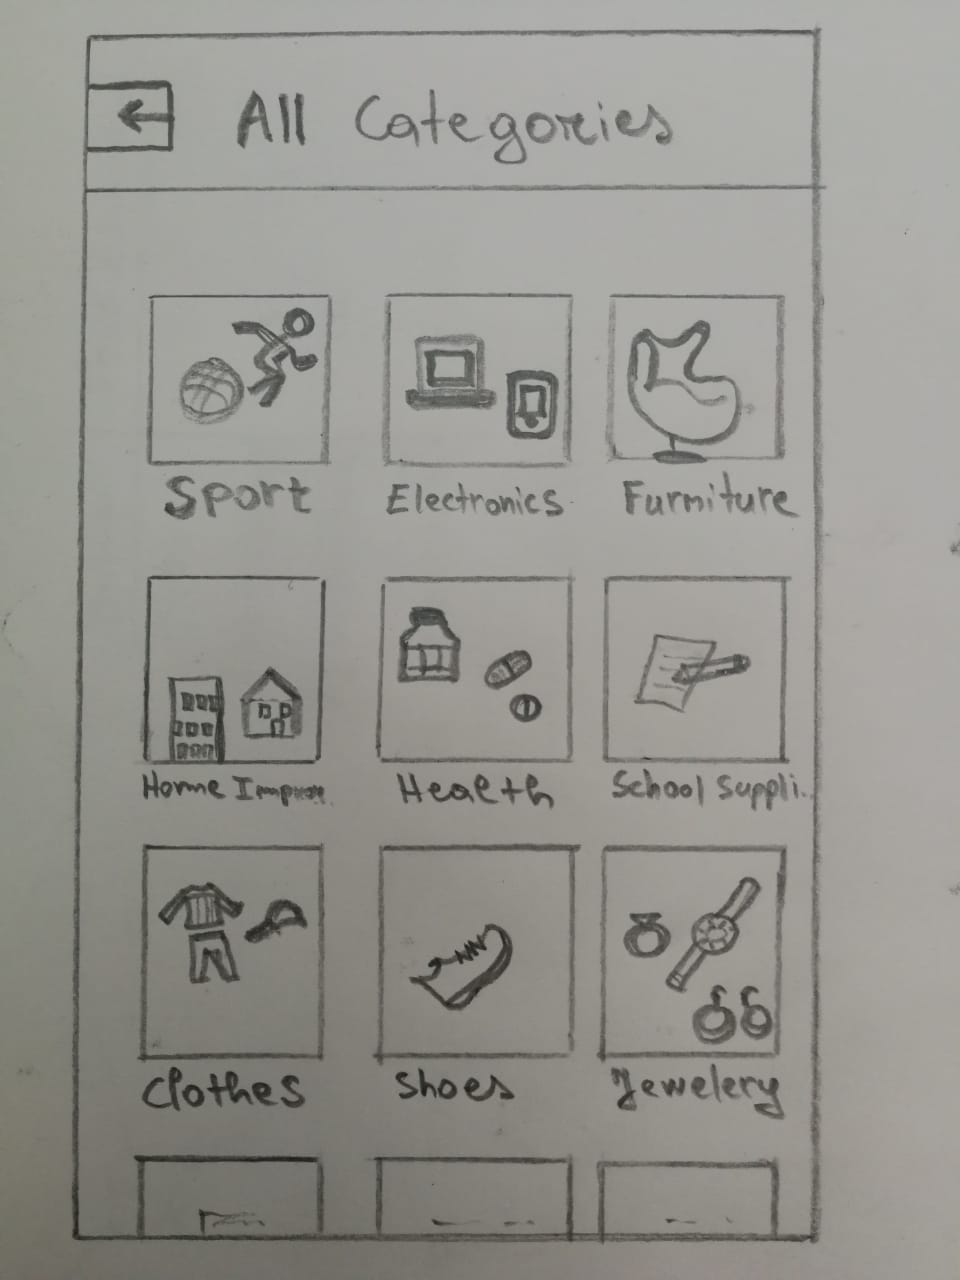 All Categories
Sport Electronics Furniture
Home Improve. Health School Suppli..
Clothes Shoes Jewelery